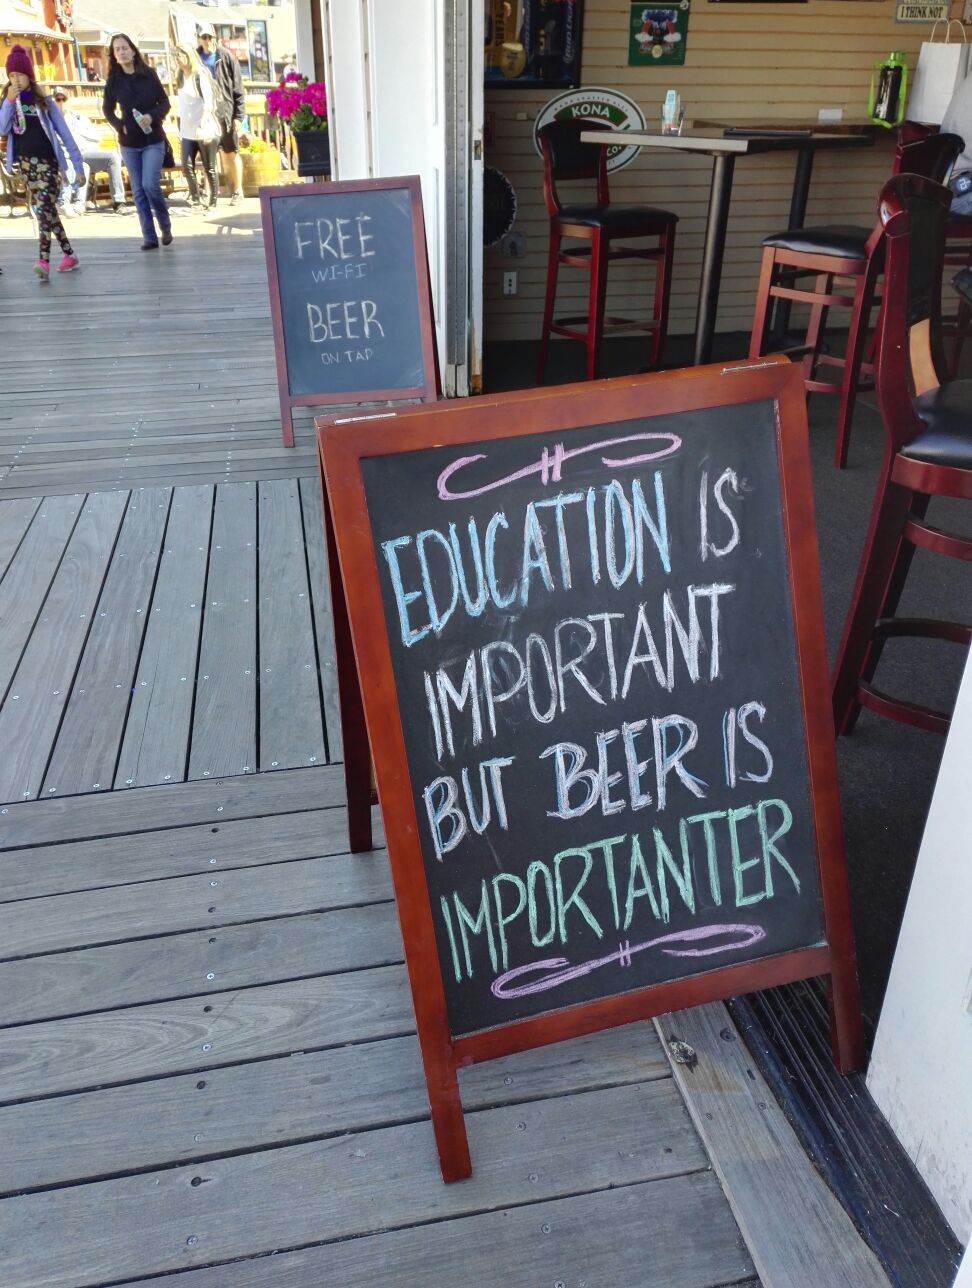 I THINK NOT
KONA
CO.
FREE
WI-FI
BEER
ON TAP
EDUCATION IS
IMPORTANT
BUT BEER IS
IMPORTANTER